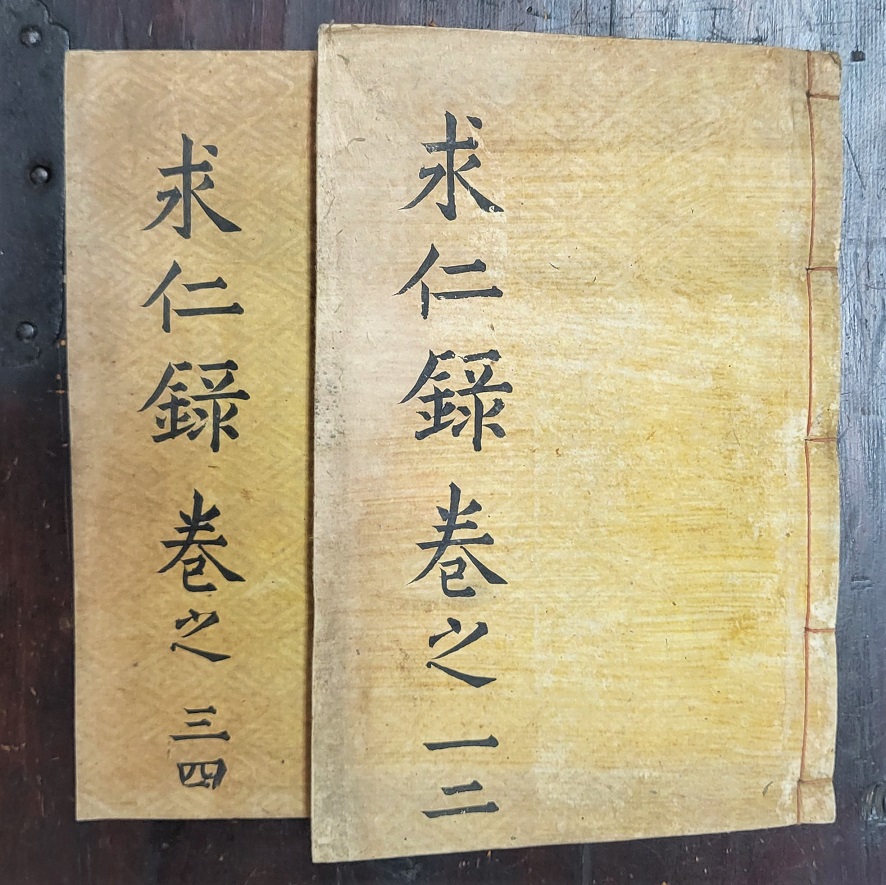 求仁錄 卷之 一二
求仁錄 卷之 三四